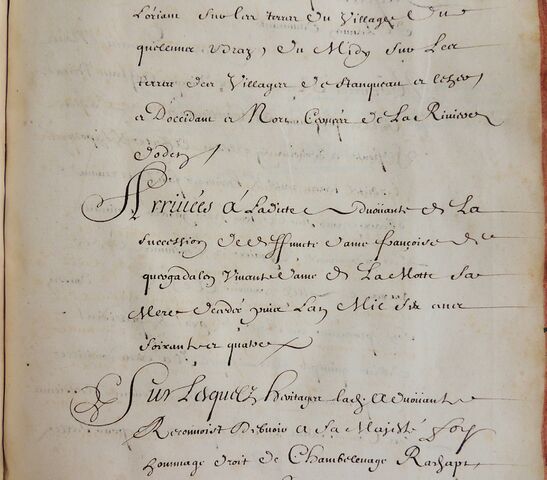 Loriam Sur les terres Du Village Du
quelenner Vraz, Du Midy Sur Les
terres des Villages De Stanqueau et
et Doccidant et Nort Cerner de La Riviere
dodet
Arrivées á Laditte advoüante de La
succession de deffuncte dame françoise de
quergadalen Vivante dame de La Motte sa
Mere decedée Lan Mil Six cent
soixante et quatre
Sur Lesquelz heritages lad. advoüante
Reconnoist debvoir a Sa Majesté foy
hommage droit de Chambelenage Rachapt